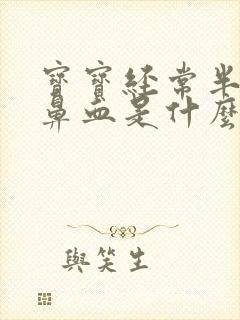 寶寶經常半
鼻血是什麼
與笑生